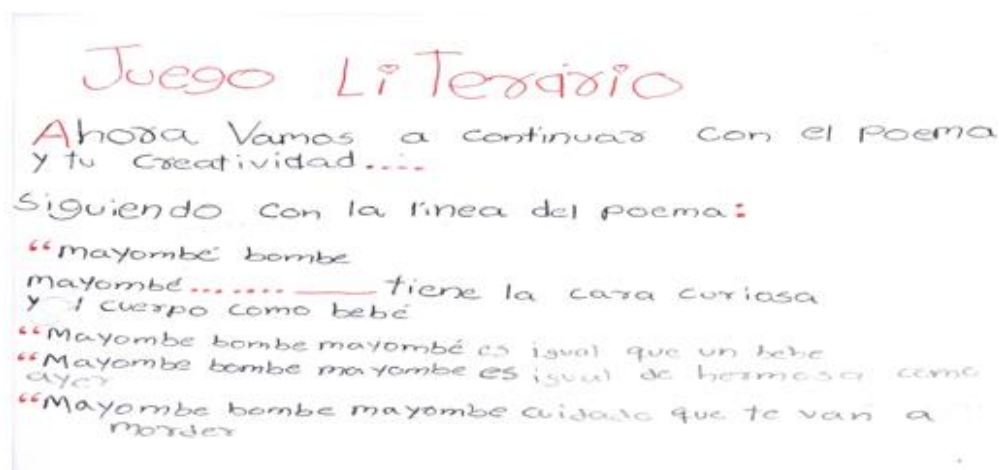 Juego LiTerario
Ahora Vamos a continuar con el poema
y tu Creatividad.....
Siguiendo con la linea del poema:
“mayombé bombe
mayombé....... ______ tiene la cara curiosa
y l cuerpo como bebé
“Mayombe bombe mayombé es igual que un bebe
“Mayombe bombe mayombe es igual de hermosa como
ayer
“Mayombe bombe mayombe cuidado que te van a
morder